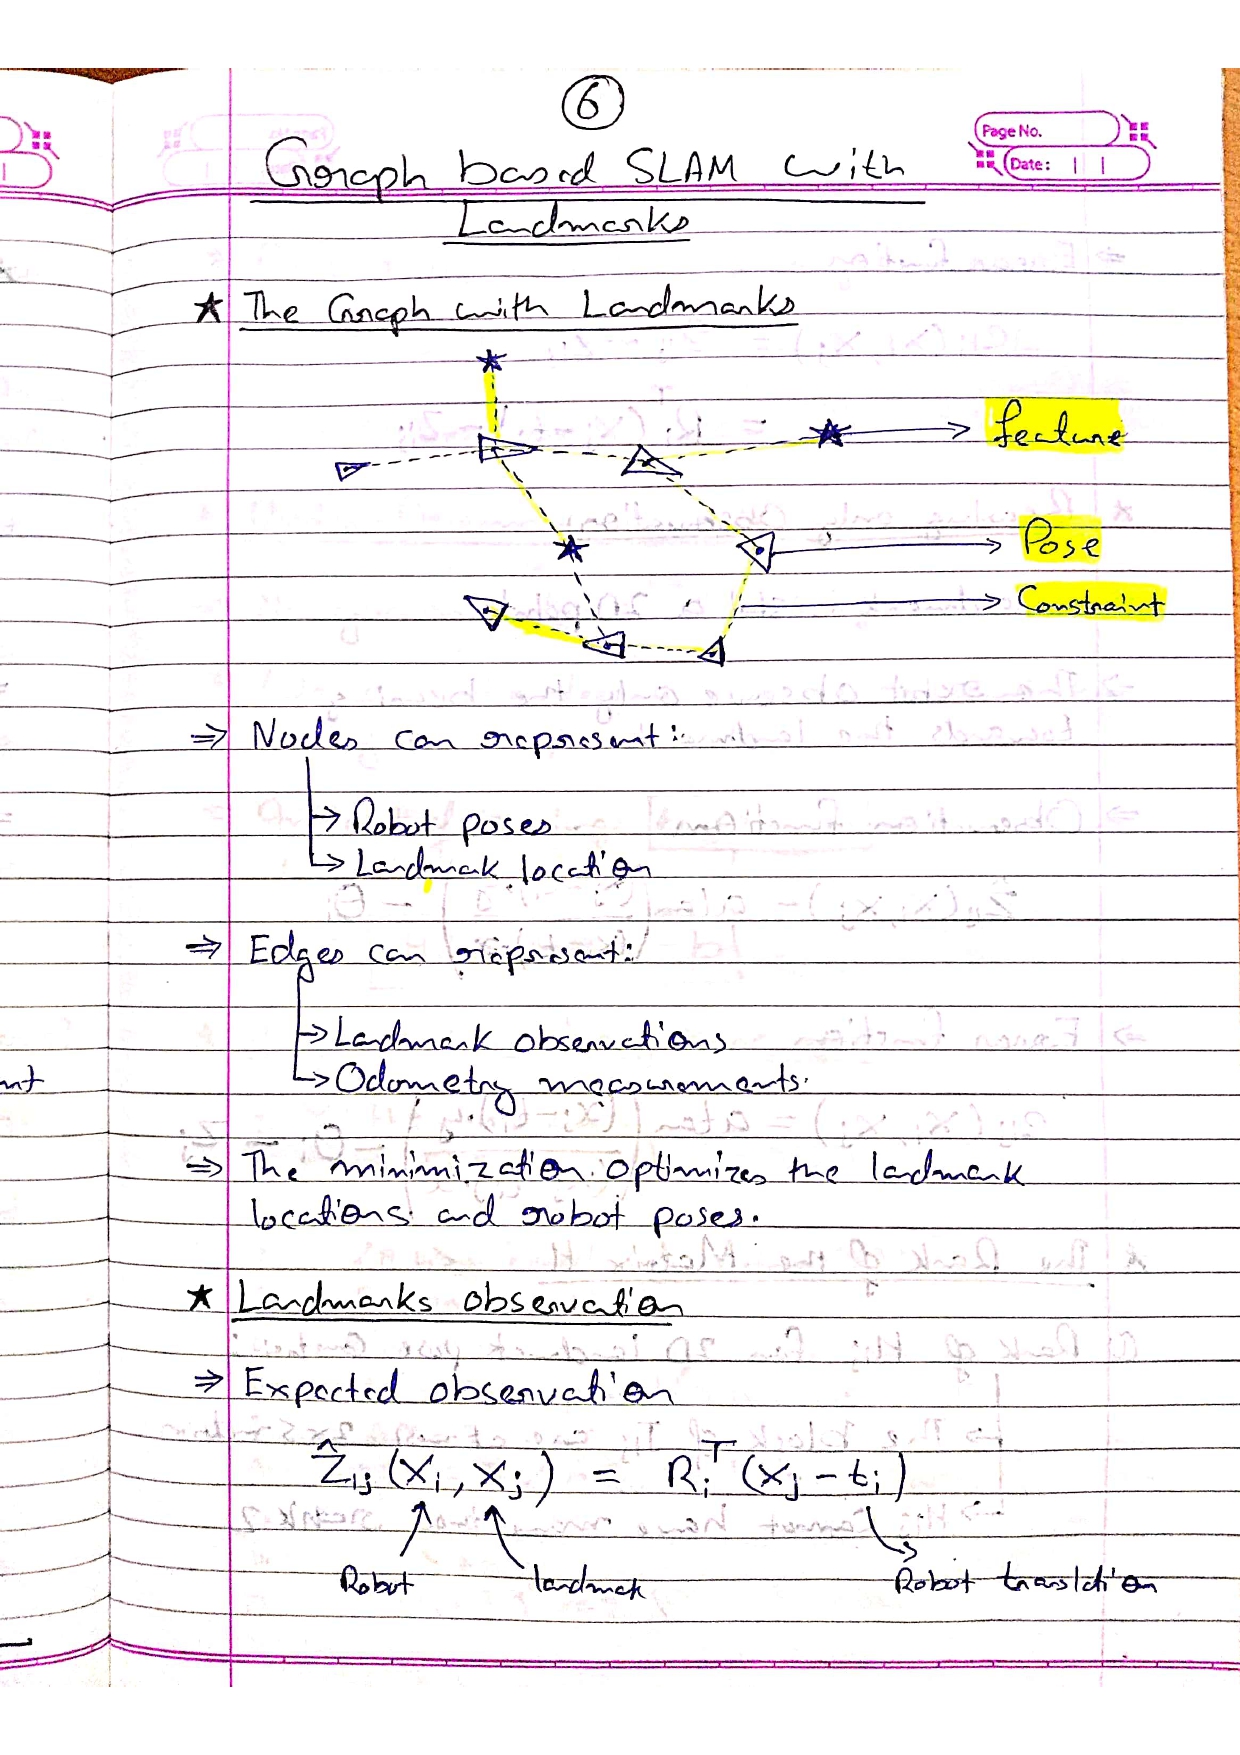 6
Page No.
Date:
Graph based SLAM with
Landmarks
★ The Graph with Landmarks
feature
Pose
Constraint
⇒ Nodes can represent:
→ Robot poses
→ Landmak location
⇒ Edges can represent:
→ Landmark observations
→ Odometry measurements.
⇒ The minimization optimizes the landmark
locations and robot poses.
★ Landmarks observation
⇒ Expected observation
Ẑij (Xi, Xj) = Ri^T (Xj - ti)
Robot landmak Robot translation